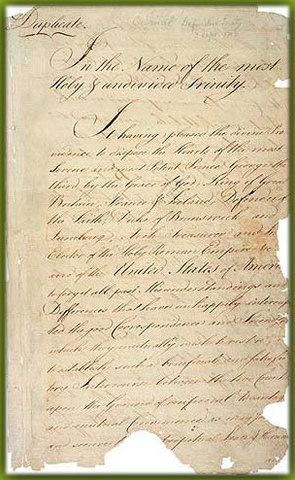 Duplicate.
Definitive Treaty
Sept. 1783
In the Name of the most
Holy & undivided Trinity.
It having pleased the divine Pro
vidence to dispose the Hearts of the most
Serene and most Potent Prince George the
third, by the Grace of God, King of Great
Britain, France & Ireland, Defender of
the Faith, Duke of Brunswick and
Lunebourg, Arch Treasurer and
Elector of the Holy Roman Empire
and of the United States of Americ
to forget all past Misunderstandings and
Differences that have unhappily interrup
ted the good Correspondence and Friendsh
which they mutually wish to restore
to establish such a beneficial and satisfac
tory Intercourse between the two Countr
upon the Ground of reciprocal Advanta
and mutual Convenience as may
and secure perpetual Peace & Harmon